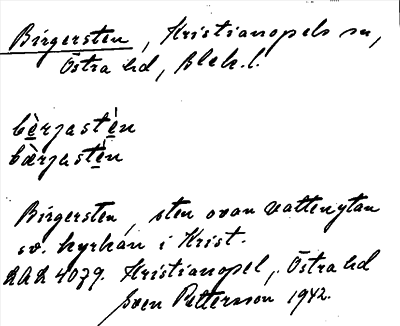 Birgersten, Kristianopels sn,
Östra hd, Blek. l.
bèrjastén
bærjastén
Birgersten, sten ovan vattenytan
sv. kyrkan i Krist.
RAK 4079. Kristianopel, Östra hd
Sven Pettersson 1942.